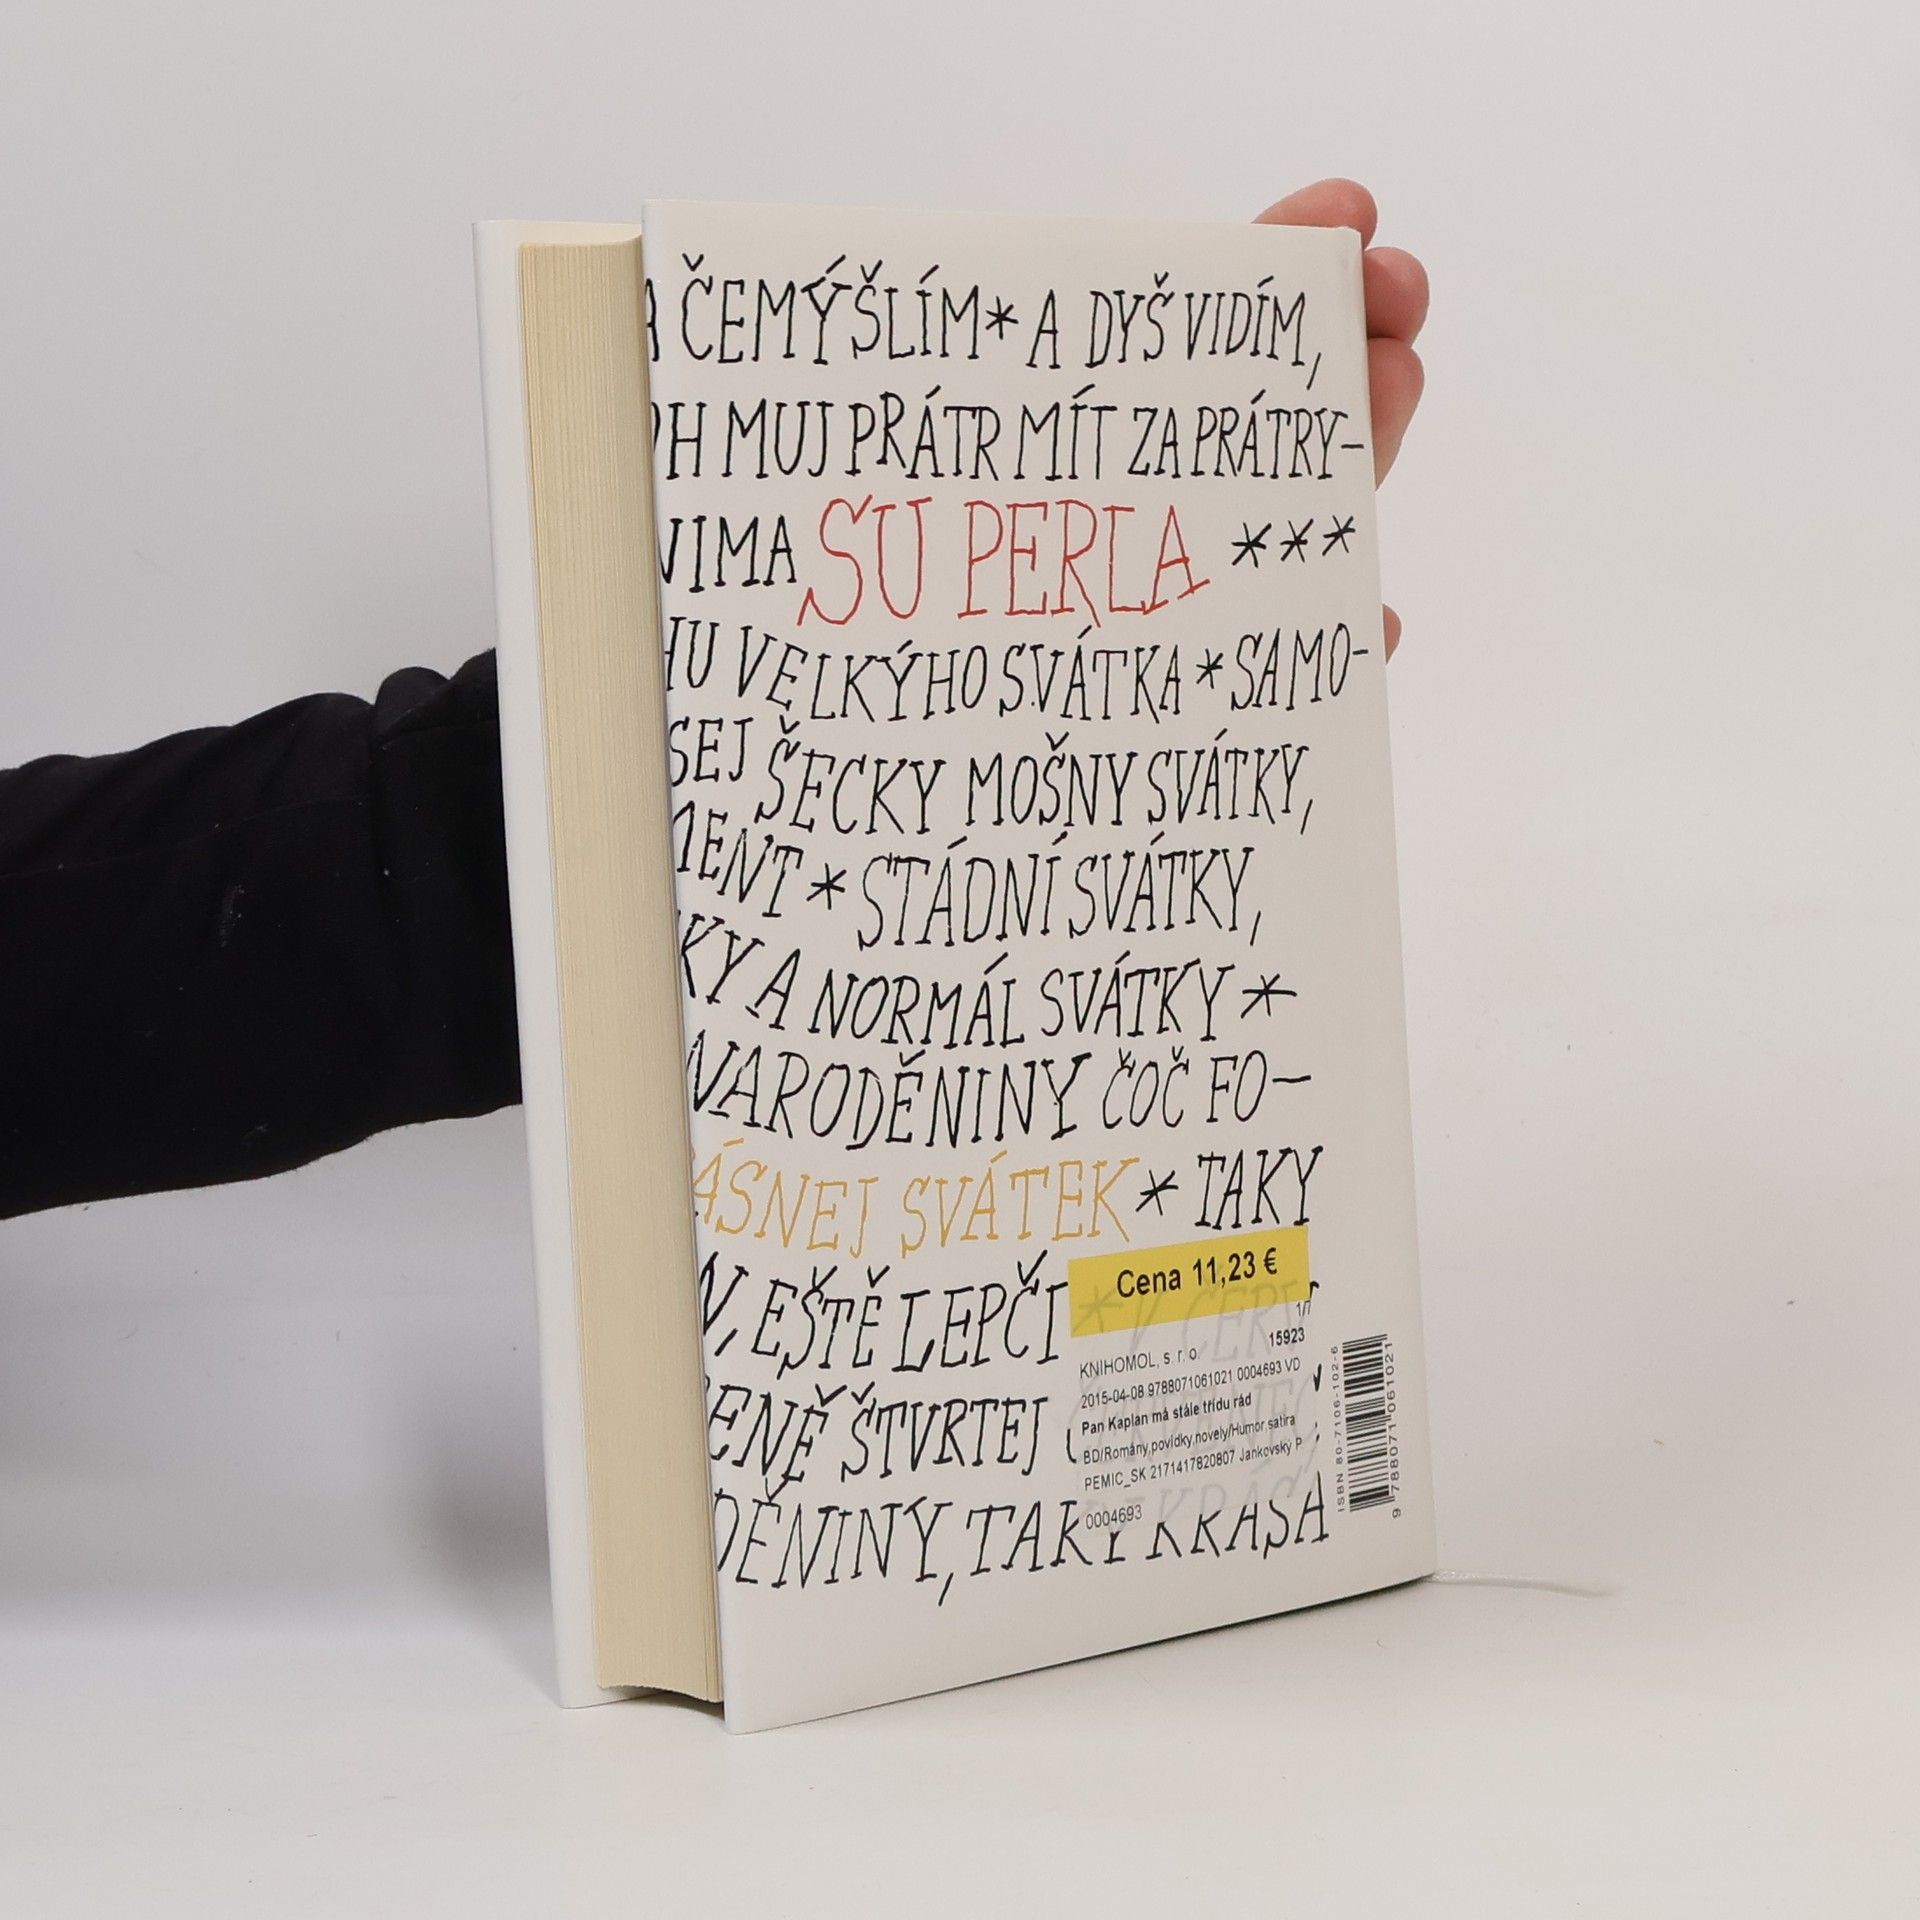 ČEMÝŠLÍM * A DYŠ VIDÍM,
MUJ PRÁTR MÍT ZA PRÁTRY-
VIMA SU PERLA ***
HU VELKÝHO SVÁTKA * SAMO-
SEJ ŠECKY MOŠNY SVÁTKY,
MENT * STÁDNÍ SVÁTKY,
KY A NORMÁL SVÁTKY *
NARODĚNINY ČOČ FO-
ÁSNEJ SVÁTEK * TAKY
N, EŠTĚ LEPČI * V ČERV
ENĚ ŠTVRTEJ
DĚNINY, TAKY KRÁSA
Cena 11,23 €
1/1
15923
KNIHOMOL, s. r. o.
2015-04-08 9788071061021 0004693 VD
Pan Kaplan má stále třídu rád
BD/Romány,povídky,novely/Humor,satira
PEMIC_SK 2171417820807 Jankovský P
0004693
ISBN 80-7106-102-6
9 788071 061021